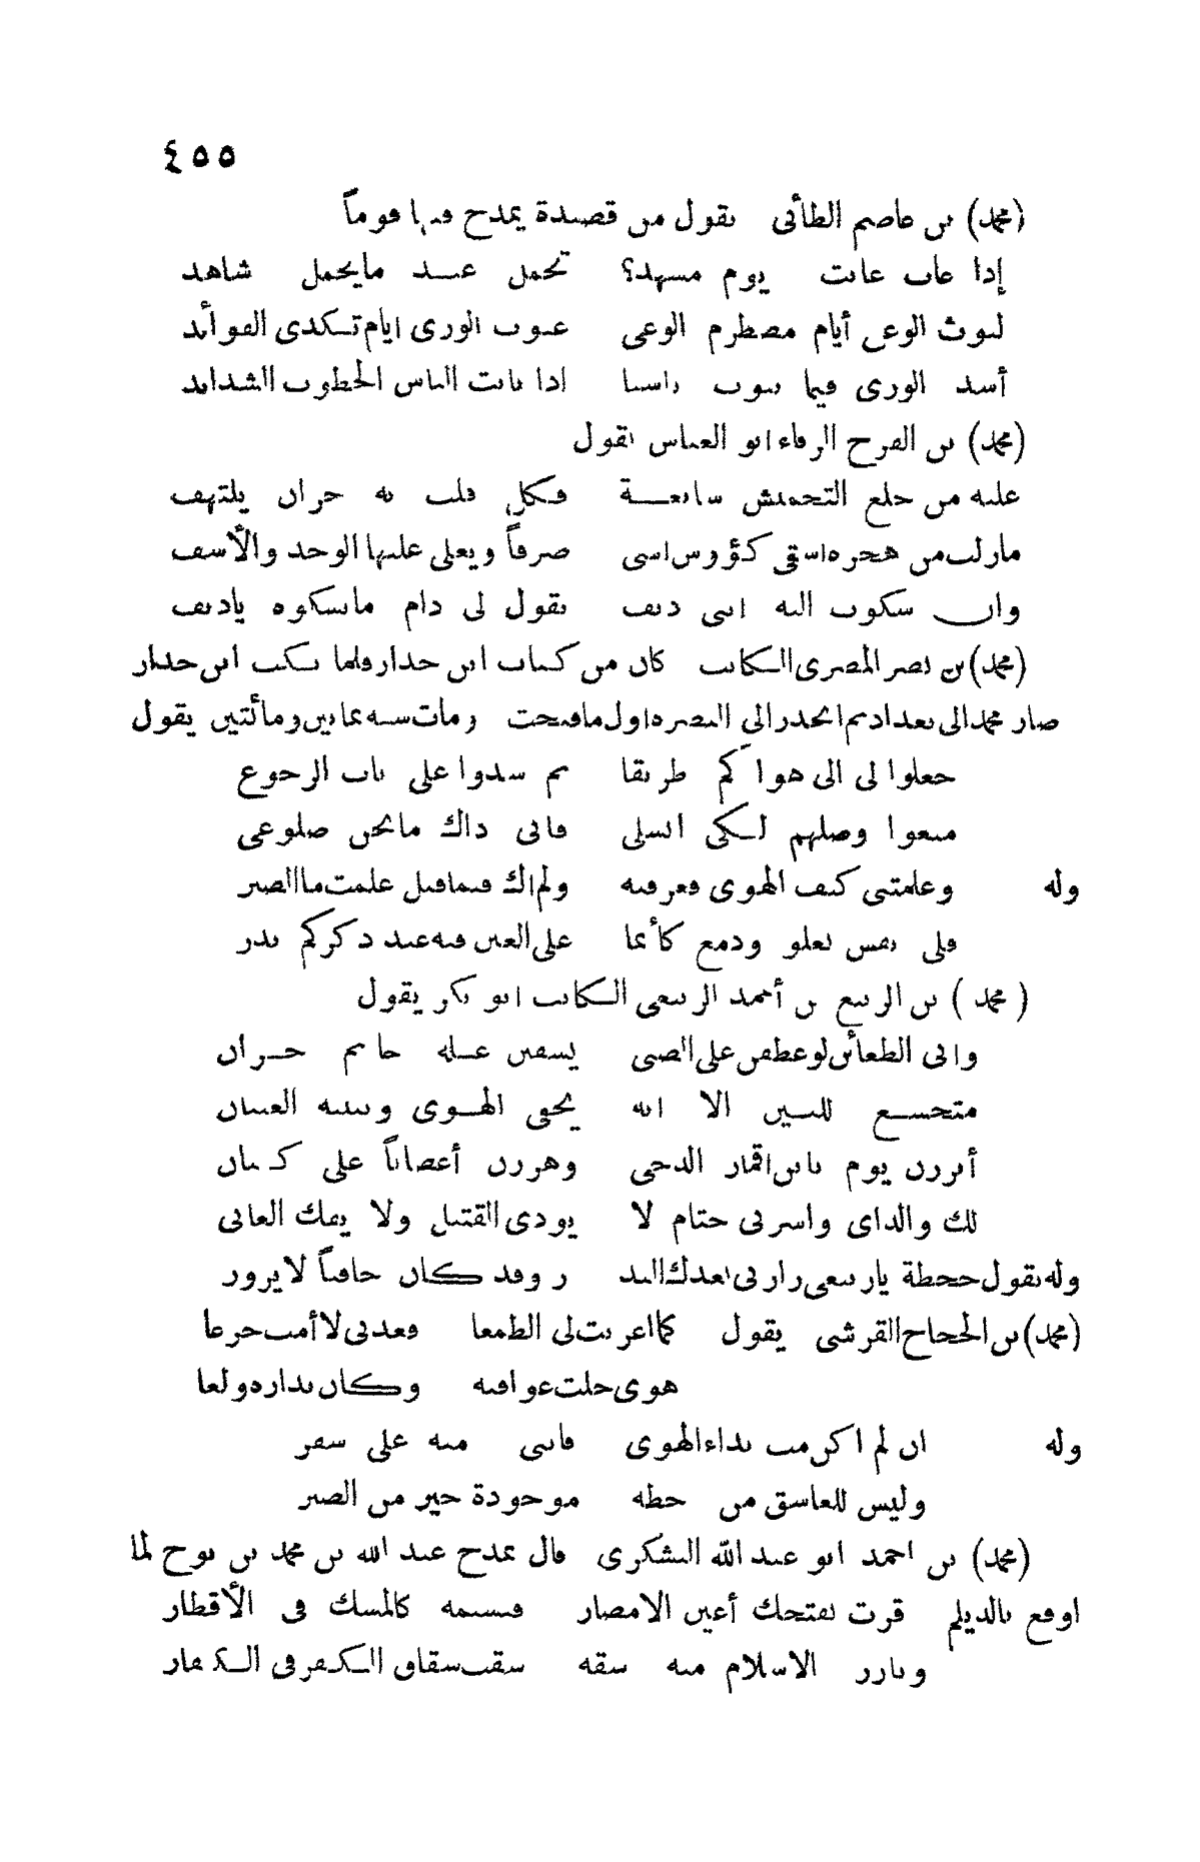 ٤٥٥
(محمد) بن عاصم الطائى يقول من قصيدة يمدح فيها قوماً
إذا غاب غابت يوم مشهد؟ تحمل عبد مايحمل شاهد
ليوث الوغى أيام مضطرم الوغى غيوث الورى ايام تكدى الفوائد
أسد الورى فيما ينوب اذا نابت الناس الخطوب الشدايد
(محمد) بن الفرج الرفاء ابو العباس يقول
عليه من خلع التخميش سابغـة فكل قلب به حران يلتهف
مازلت من هجره اسقى كؤوس اسى صرفاً ويعلى عليها الوجد والأسف
وان شكوت اليه اننى دنف يقول لى دام ماتشكوه يادنف
(محمد) بن نصر المصرى الكاتب كان من كتاب ابن جدار فلما نكب ابن جدار
صار محمد الى بغداد ثم انحدر الى البصره اول مافتحت ومات سنه ثمانين ومائتين يقول
جعلوا لى الى هواكم طريقا ثم سدوا على باب الرجوع
منعوا وصلهم لكى اتسلى فابى ذاك ماتجن ضلوعى
وله وعلمتنى كيف الهوى فعرفته ولم اك فيما قبل علمت ما الصبر
فلى نفس تعلو ودمع كأنما على العين فيه عند ذكركم نذر
(محمد) بن الربيع بن أحمد الربيعى الكاتب ابو بكر يقول
وابى الظعائن لو عطفن على الصبى يسفين غـله حايم حـران
متخشع للبين الا انه يخفى الهـوى ويبينه العينان
أبرزن يوم بانن اقمار الدجى وهززن أغصاناً على كـثبان
لك والداى واسرتى حتام لا يودى القتيل ولا يفك العانى
وله يقول جحظة ياربيعى زارنى بعدك البد ر وقد كان جافياً لا يزور
(محمد) بن الحجاج القرشى يقول كما اغريت لى الطمعا فعدنى لا أمت جزعا
هوى جلت عواقبه وكان بداره ولعا
وله ان لم اكن مت بداء الهوى فاننى منه على سفر
وليس للعاشق من حظه موجودة خير من الصبر
(محمد) بن احمد ابو عبد الله اليشكرى قال يمدح عبد الله بن محمد بن نوح لما
اوقع بالديلم قرت بفتحك أعين الامصار فنسيمه كالمسك فى الأقطار
الاسلام منه سقه سقت الكفر فى الكفار